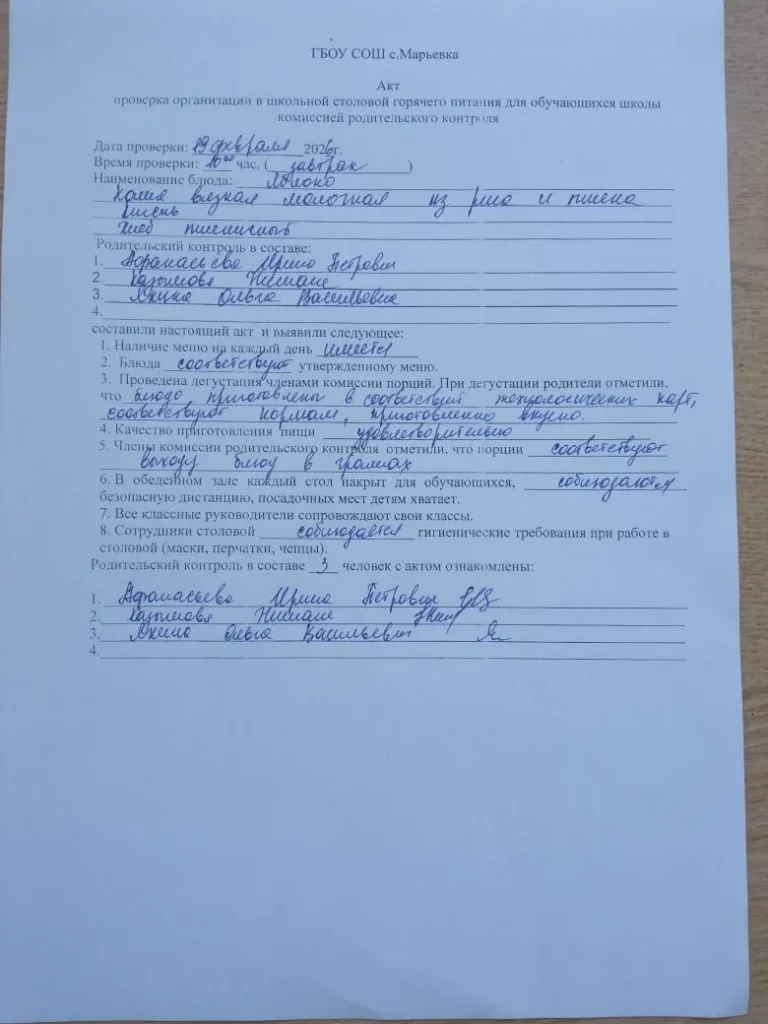 ГБОУ СОШ с.Марьевка
Акт
проверка организации в школьной столовой горячего питания для обучающихся школы
комиссией родительского контроля
Дата проверки: 19 февраля 2026г.
Время проверки: 10⁰⁰ час. ( завтрак )
Наименование блюда: Яблоко
Каша вязкая молочная из риса и пшена
Кисель
Хлеб пшеничный
Родительский контроль в составе:
1. Афанасьева Ирина Петровна
2.
3. Якина Ольга Васильевна
4.
составили настоящий акт и выявили следующее:
1. Наличие меню на каждый день имеется
2. Блюда соответствуют утвержденному меню.
3. Проведена дегустация членами комиссии порций. При дегустации родители отметили,
что блюдо приготовлены в соответствии технологических карт,
соответствуют нормам, приготовлено вкусно.
4. Качество приготовления пищи удовлетворительно
5. Члены комиссии родительского контроля отметили, что порции соответствуют
выходу блюд в граммах
6. В обеденном зале каждый стол накрыт для обучающихся, соблюдают
безопасную дистанцию, посадочных мест детям хватает.
7. Все классные руководители сопровождают свои классы.
8. Сотрудники столовой соблюдается гигиенические требования при работе в
столовой (маски, перчатки, чепцы).
Родительский контроль в составе 3 человек с актом ознакомлены:
1. Афанасьева Ирина Петровна
2.
3. Якина Ольга Васильевна
4.